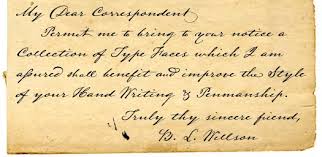 My Dear Correspondent
Permit me to bring to your notice a
Collection of Type Faces which I am
aſsured shall benefit and improve the Style
of your Hand Writing & Penmanship.
Truly thy sincere friend,
B. L. Willson